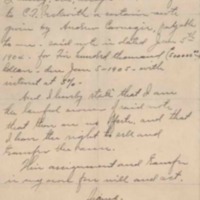 to C. T. a certain note
given by Andrew Carnegie, payable
to me - said note is dated June 5th
1904 - for five hundred thousand
dollars - due June 5 - 1905 - with
interest at
And I hereby state that I am
the lawful owner of said note,
that there are no offsets, and that
I have the right to sell and
transfer the same.
This assignment and transfer
is my own free will and act.